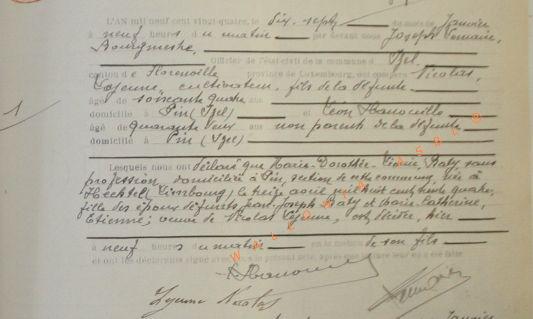 L'AN mil neuf cent vingt-quatre, le dix-sept du mois de Janvier
à neuf heures du matin par devant nous Joseph
Bourgmestre,
Officier de l'état civil de la commune d'Izel,
canton de Florenville province de Luxembourg, ont comparu Nicolas,
Lejeune, cultivateur, fils de la défunte
âgé de soixante quatre ans
domicilié à Pin (Izel) et Léon
âgé de quarante deux ans non parent de la défunte
domicilié à Pin (Izel)
1
Lesquels nous ont déclaré que Marie-Dorothée- Baty sans
profession domiciliée à Pin, section de cette commune, née à
Hechtel (Limbourg) le treize avril mil huit cent trente quatre,
fille des époux défunts Jean-Joseph Baty et Marie Catherine,
Etienne; veuve de Nicolas Lejeune, est décédée, hier
à neuf heures du matin en la maison de son fils
et ont les déclarants signé avec nous le présent acte, après que lecture leur en a été faite
Lejeune Nicolas
Janvier